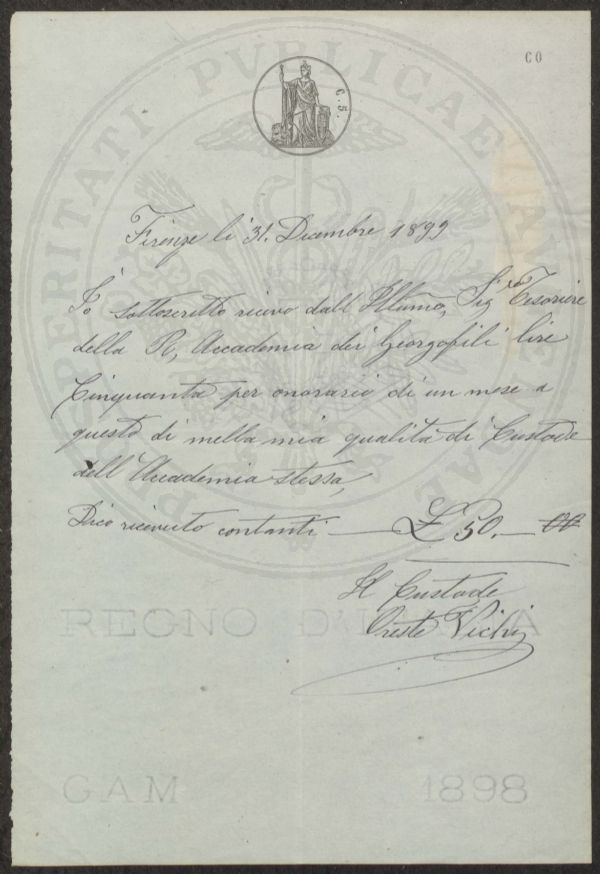 PROSPERITATI PVBLICAE AVGENDAE
C O
C. 5.
Firenze li 31. Dicembre 1899
Io sottoscritto ricevo dall Illumo, Sigre Tesoriere
della R, Accademia dei Georgofili lire
Cinquanta per onorario di un mese a
questo di nella mia qualità di Custode
dell'Accademia stessa,
Dico ricevuto contanti — £ 50.— 00
Il Custode
Oreste Vichi
REGNO D'ITALIA
GAM 1898